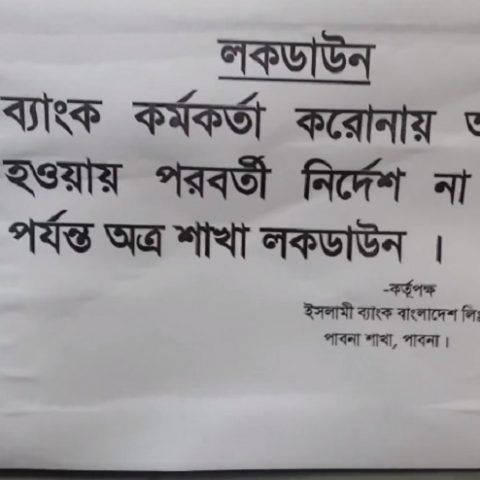 লকডাউন
ব্যাংক কর্মকর্তা করোনায়
হওয়ায় পরবর্তী নির্দেশ না
পর্যন্ত অত্র শাখা লকডাউন ।
-কর্তৃপক্ষ
ইসলামী ব্যাংক বাংলাদেশ লিঃ
পাবনা শাখা, পাবনা ।